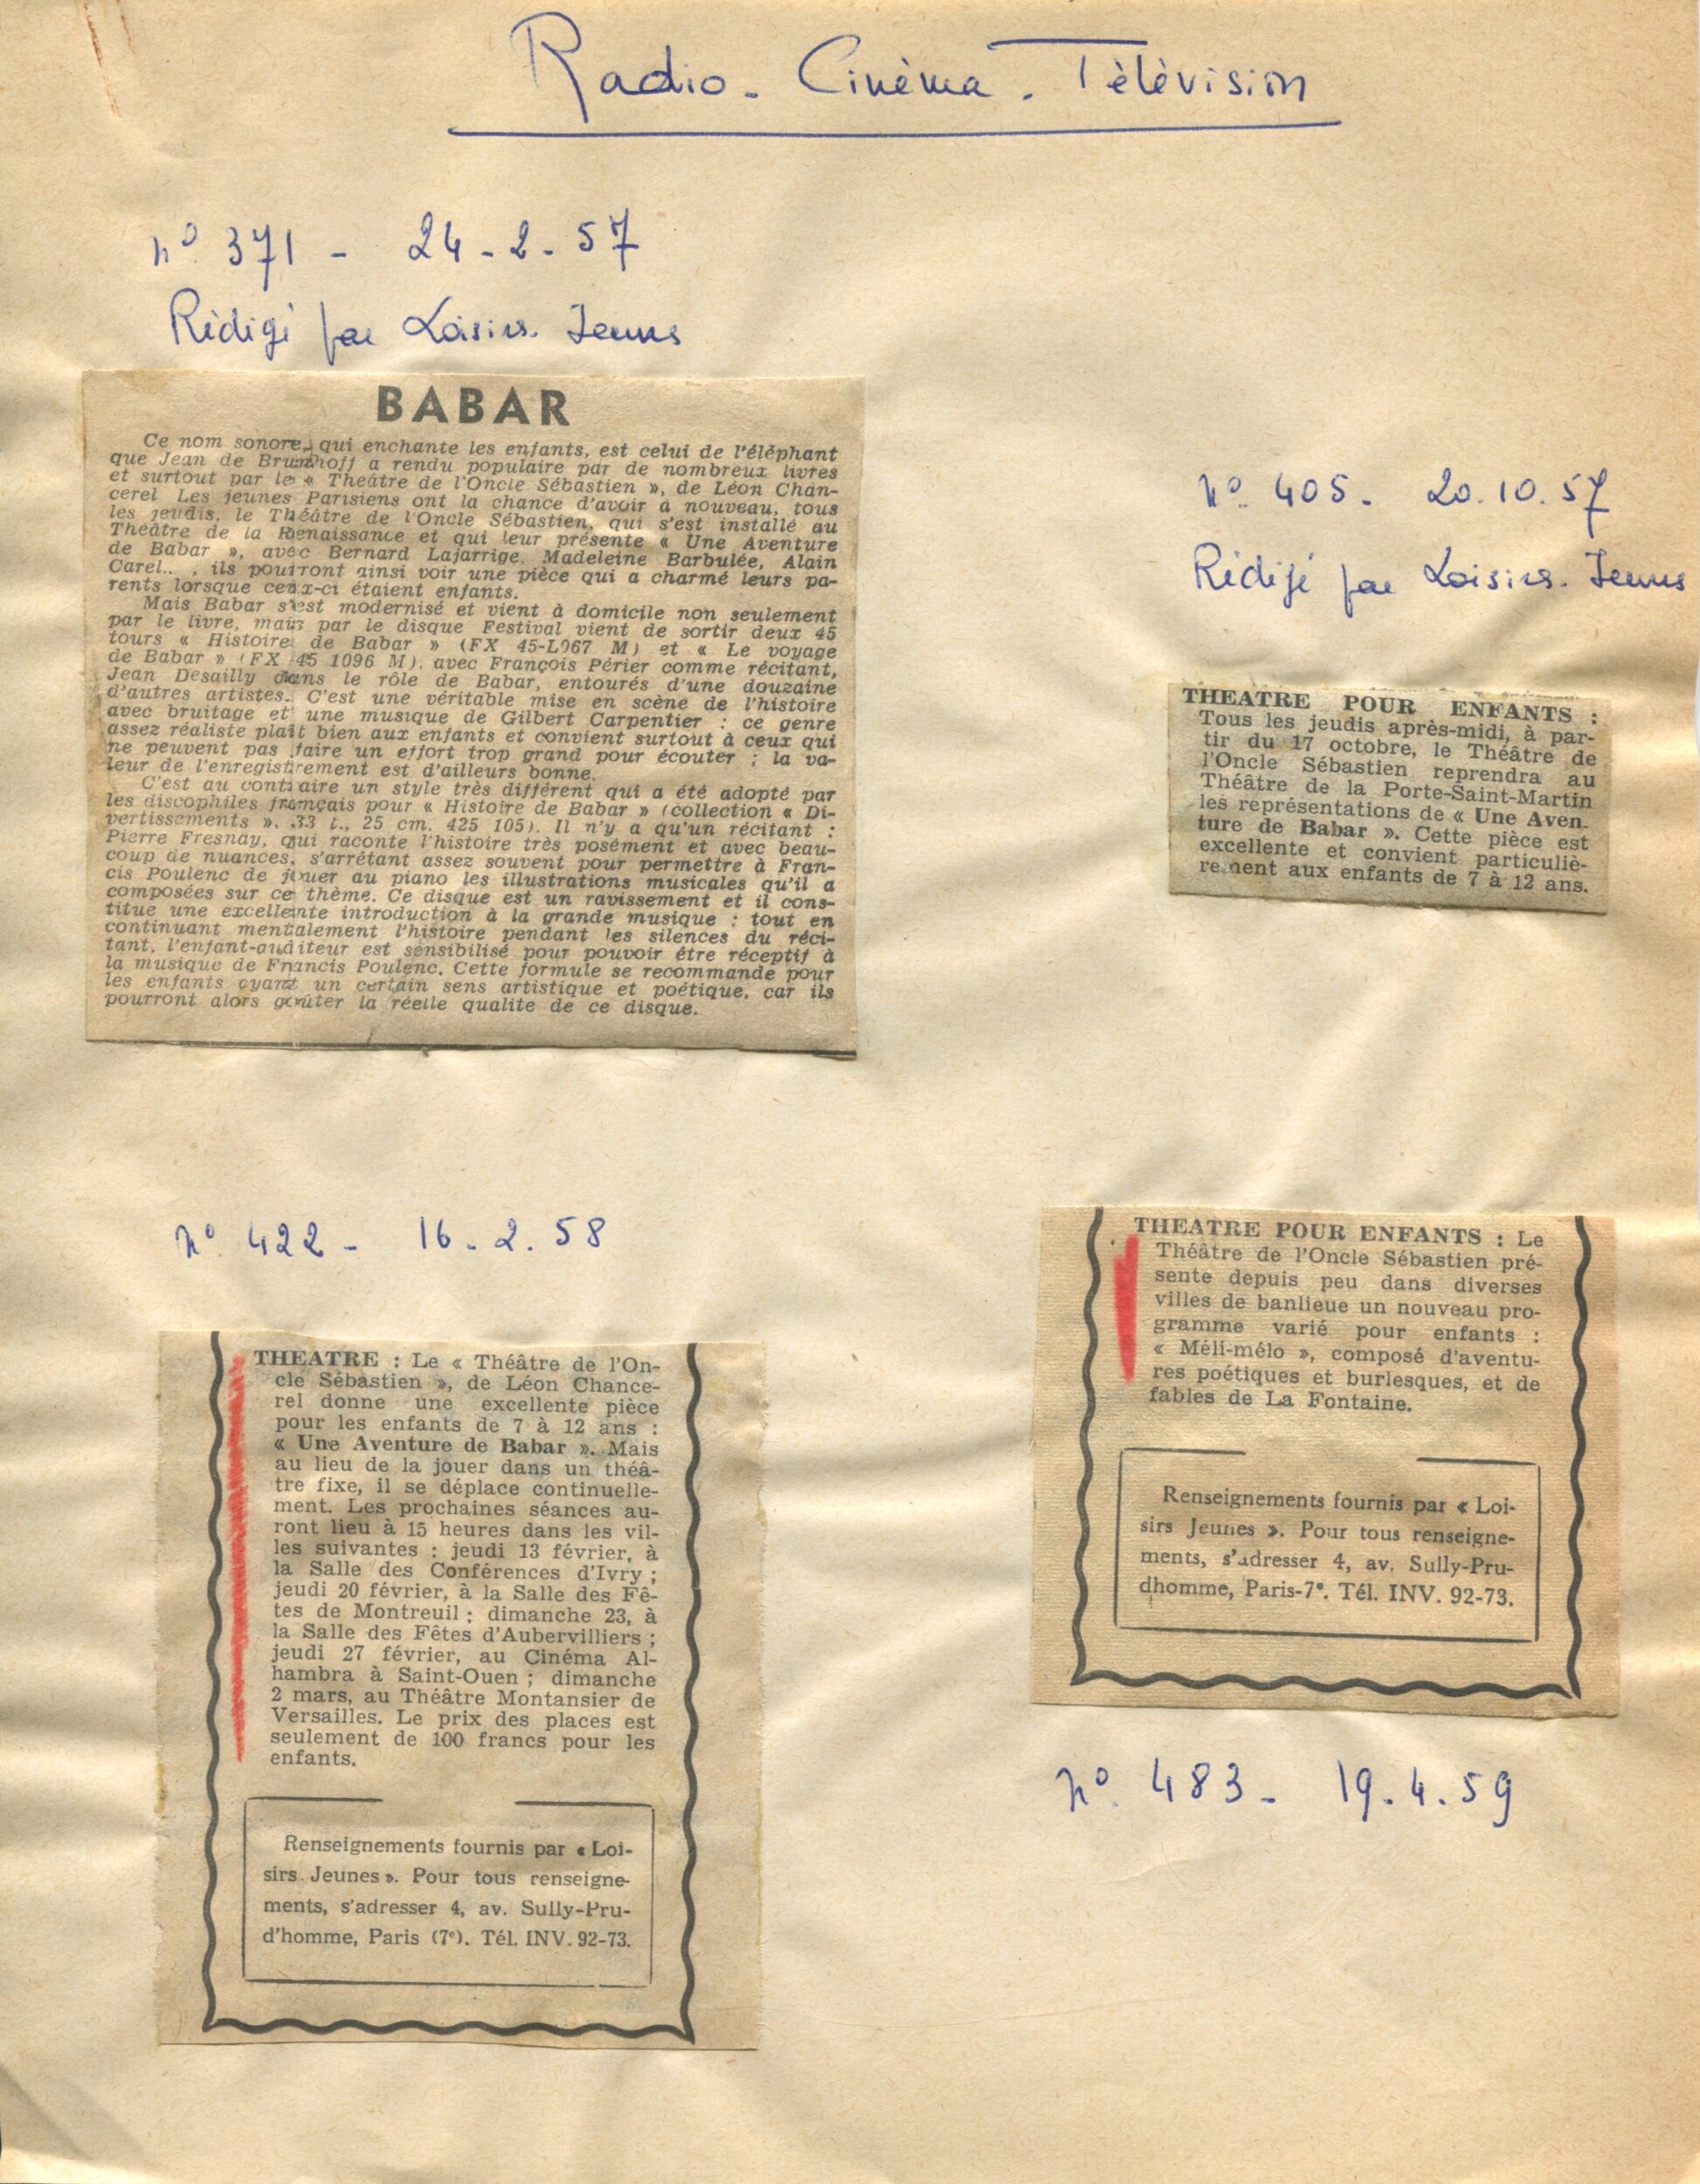 Radio - Cinéma - Télévision
n° 371 - 24-2-57
Rédigé par Loisirs-Jeunes
BABAR
Ce nom sonore, qui enchante les enfants, est celui de l'éléphant
que Jean de Brunhoff a rendu populaire par de nombreux livres
et surtout par le « Théâtre de l'Oncle Sébastien », de Léon Chan-
cerel Les jeunes Parisiens ont la chance d'avoir à nouveau, tous
les jeudis, le Théâtre de l'Oncle Sébastien, qui s'est installé au
Théâtre de la Renaissance et qui leur présente « Une Aventure
de Babar », avec Bernard Lajarrige, Madeleine Barbulée, Alain
Carel... , ils pourront ainsi voir une pièce qui a charmé leurs pa-
rents lorsque ceux-ci étaient enfants.
Mais Babar s'est modernisé et vient à domicile non seulement
par le livre, mais par le disque Festival vient de sortir deux 45
tours « Histoire de Babar » (FX 45-1067 M) et « Le voyage
de Babar » (FX 45 1096 M), avec François Périer comme récitant,
Jean Desailly dans le rôle de Babar, entourés d'une douzaine
d'autres artistes. C'est une véritable mise en scène de l'histoire
avec bruitage et une musique de Gilbert Carpentier : ce genre
assez réaliste plaît bien aux enfants et convient surtout à ceux qui
ne peuvent pas faire un effort trop grand pour écouter ; la va-
leur de l'enregistrement est d'ailleurs bonne.
C'est au contraire un style très différent qui a été adopté par
les discophiles français pour « Histoire de Babar » (collection « Di-
vertissements », 33 t., 25 cm. 425 105). Il n'y a qu'un récitant :
Pierre Fresnay, qui raconte l'histoire très posément et avec beau-
coup de nuances, s'arrêtant assez souvent pour permettre à Fran-
cis Poulenc de jouer au piano les illustrations musicales qu'il a
composées sur ce thème. Ce disque est un ravissement et il cons-
titue une excellente introduction à la grande musique : tout en
continuant mentalement l'histoire pendant les silences du réci-
tant, l'enfant-auditeur est sensibilisé pour pouvoir être réceptif à
la musique de Francis Poulenc. Cette formule se recommande pour
les enfants ayant un certain sens artistique et poétique, car ils
pourront alors goûter la réelle qualité de ce disque.
n° 405 - 20.10.57
Rédigé par Loisirs-Jeunes
THEATRE POUR ENFANTS :
Tous les jeudis après-midi, à par-
tir du 17 octobre, le Théâtre de
l'Oncle Sébastien reprendra au
Théâtre de la Porte-Saint-Martin
les représentations de « Une Aven-
ture de Babar ». Cette pièce est
excellente et convient particuliè-
rement aux enfants de 7 à 12 ans.
n° 422 - 16-2.58
THEATRE : Le « Théâtre de l'On-
cle Sébastien », de Léon Chance-
rel donne une excellente pièce
pour les enfants de 7 à 12 ans :
« Une Aventure de Babar ». Mais
au lieu de la jouer dans un théâ-
tre fixe, il se déplace continuelle-
ment. Les prochaines séances au-
ront lieu à 15 heures dans les vil-
les suivantes : jeudi 13 février, à
la Salle des Conférences d'Ivry ;
jeudi 20 février, à la Salle des Fê-
tes de Montreuil ; dimanche 23, à
la Salle des Fêtes d'Aubervilliers ;
jeudi 27 février, au Cinéma Al-
hambra à Saint-Ouen ; dimanche
2 mars, au Théâtre Montansier de
Versailles. Le prix des places est
seulement de 100 francs pour les
enfants.
Renseignements fournis par « Loi-
sirs Jeunes ». Pour tous renseigne-
ments, s'adresser 4, av. Sully-Pru-
d'homme, Paris (7e). Tél. INV. 92-73.
THEATRE POUR ENFANTS : Le
Théâtre de l'Oncle Sébastien pré-
sente depuis peu dans diverses
villes de banlieue un nouveau pro-
gramme varié pour enfants :
« Méli-mélo », composé d'aventu-
res poétiques et burlesques, et de
fables de La Fontaine.
Renseignements fournis par « Loi-
sirs Jeunes ». Pour tous renseigne-
ments, s'adresser 4, av. Sully-Pru-
dhomme, Paris-7e. Tél. INV. 92-73.
n° 483 - 19.4.59